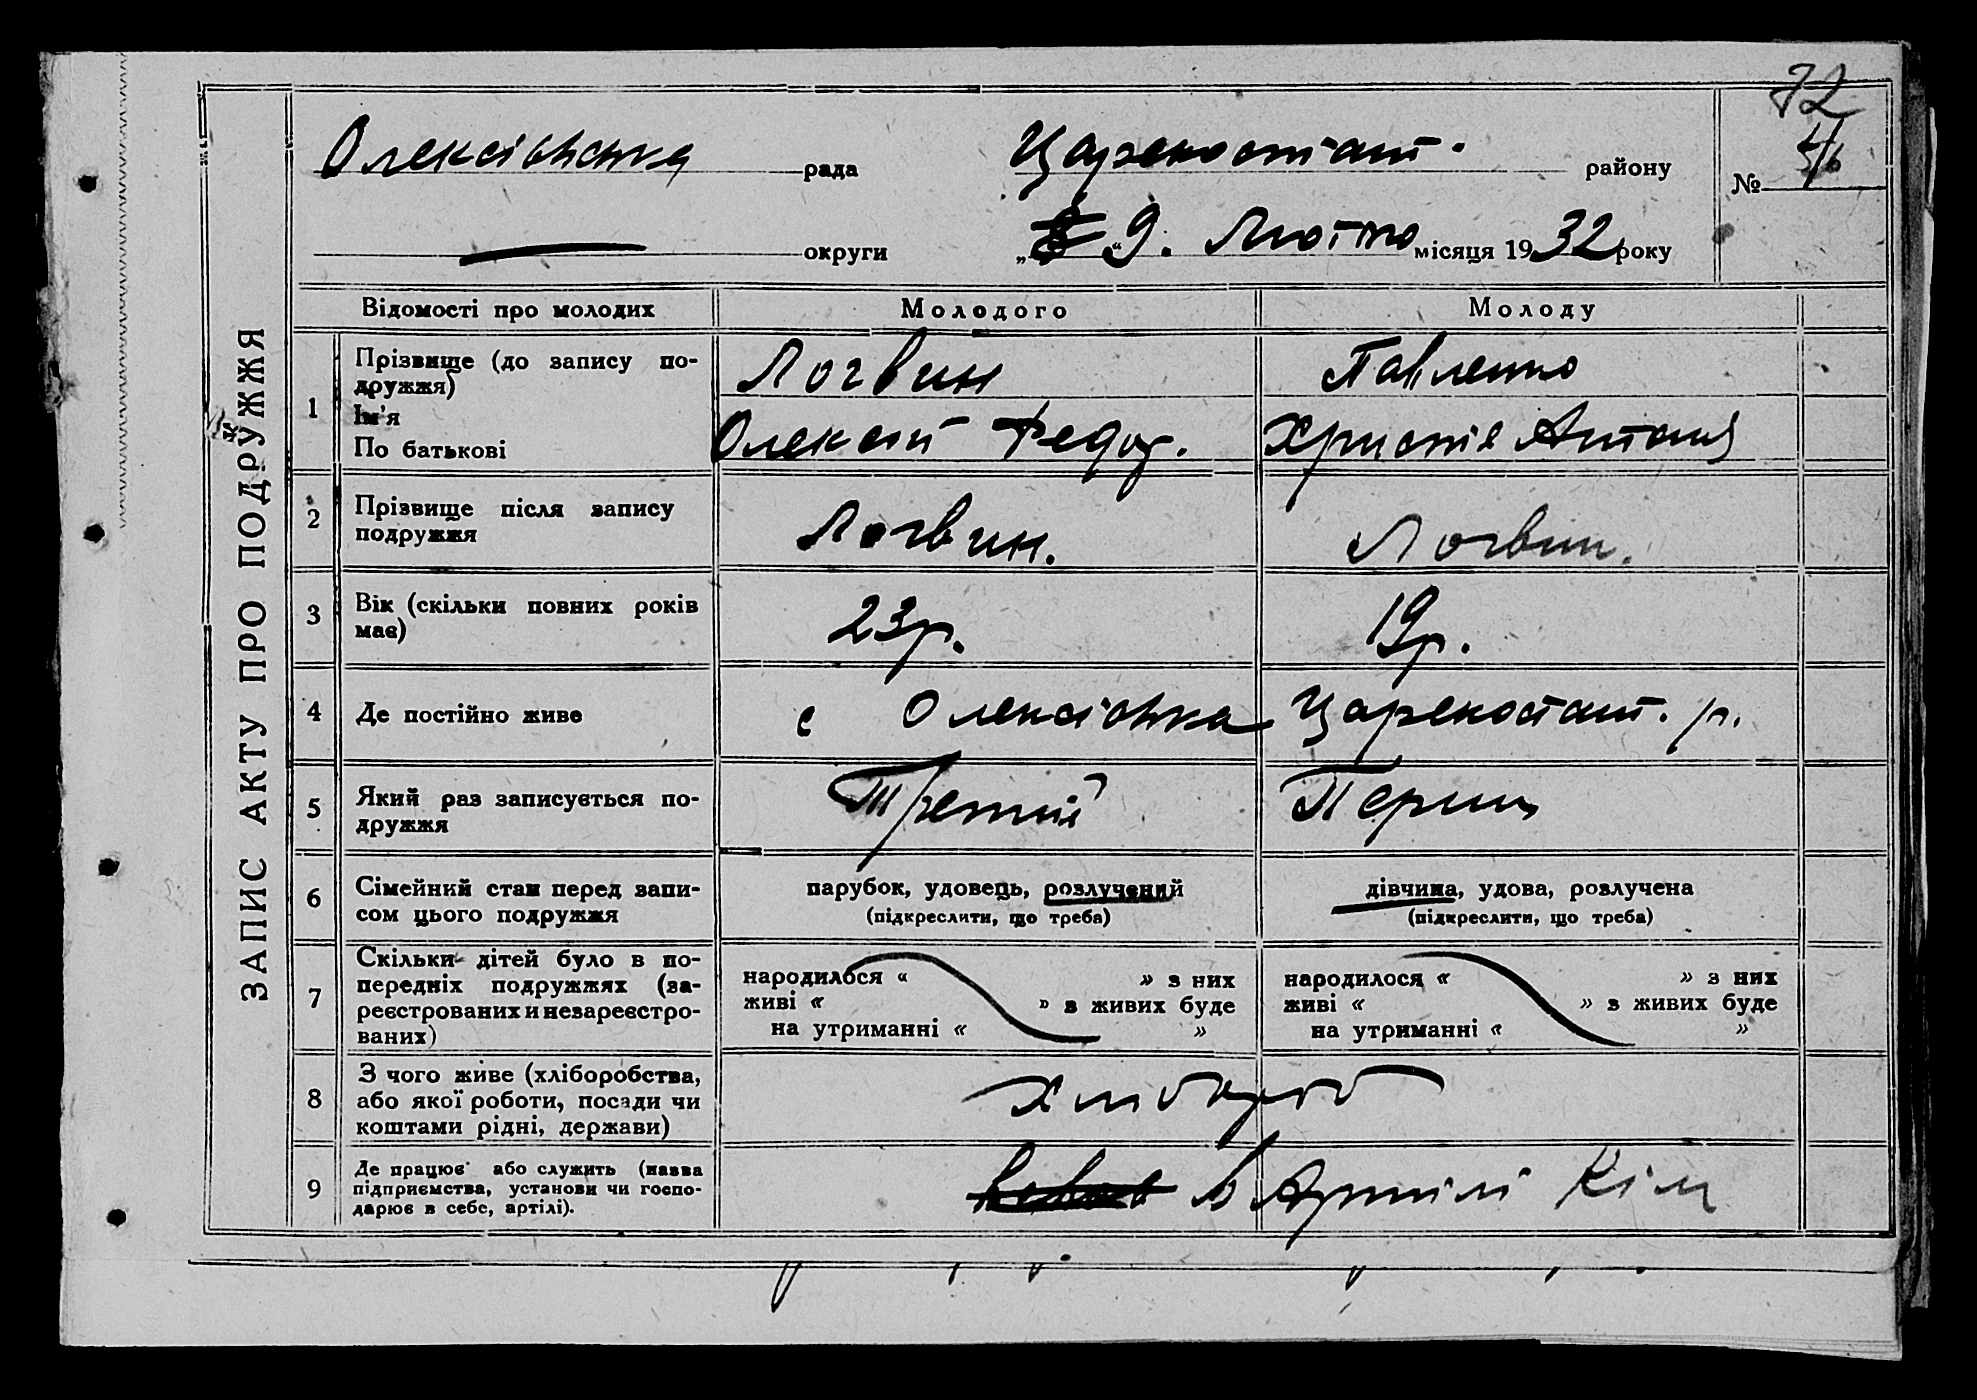 72
Олексіівська рада Царекостант. району № 4/6
округи „ “ 9. Лютого місяця 1932 року
ЗАПИС АКТУ ПРО ПОДРУЖЖЯ
Відомості про молодих Молодого Молоду
1 Прізвище (до запису по-
дружжя) Логвин Павленко
Ім'я
По батькові Олексій Федор. Христя Антон
2 Прізвище після запису
подружжя Логвин. Логвин.
3 Вік (скільки повних років
має) 23р. 19р.
4 Де постійно живе с Олексіівка Царекостант. р.
5 Який раз записується по-
дружжя Третій Перш
6 Сімейний стан перед запи-
сом цього подружжя
парубок, удовець, розлучений
(підкреслити, що треба)
дівчина, удова, розлучена
(підкреслити, що треба)
7 Скільки дітей було в по-
передніх подружжях (за-
реєстрованих и незареєстро-
ваних)
народилося « » з них
живі « » з живих буде
на утриманні « »
народилося « » з них
живі « » з живих буде
на утриманні « »
8 З чого живе (хліборобства,
або якої роботи, посади чи
коштами рідні, держави)
Хлібороб
9 Де працює або служить (назва
підприємства, установи чи госпо-
дарює в себе, артілі).
в Артілі Кім